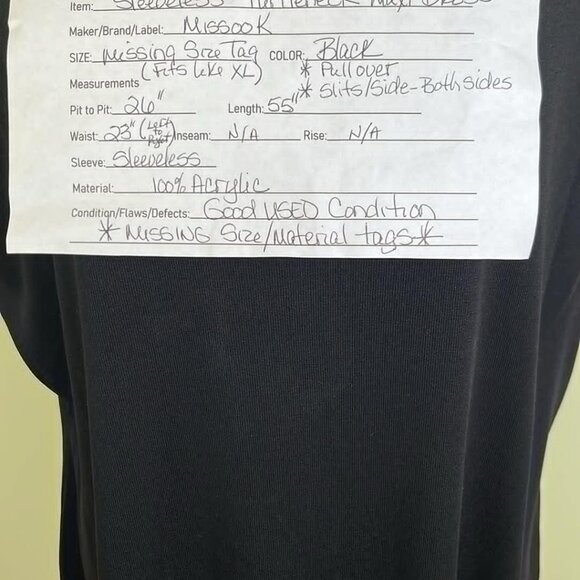 Item: Sleeveless Turtleneck Maxi Dress
Maker/Brand/Label: Missook
SIZE: Missing Size Tag COLOR: Black
(Fits like XL) * Pullover
Measurements * Slits/Side-Both Sides
Pit to Pit: 26" Length: 55"
Waist: 23" (Left to Right) Inseam: N/A Rise: N/A
Sleeve: Sleeveless
Material: 100% Acrylic
Condition/Flaws/Defects: Good USED Condition
* MISSING Size/Material tags *